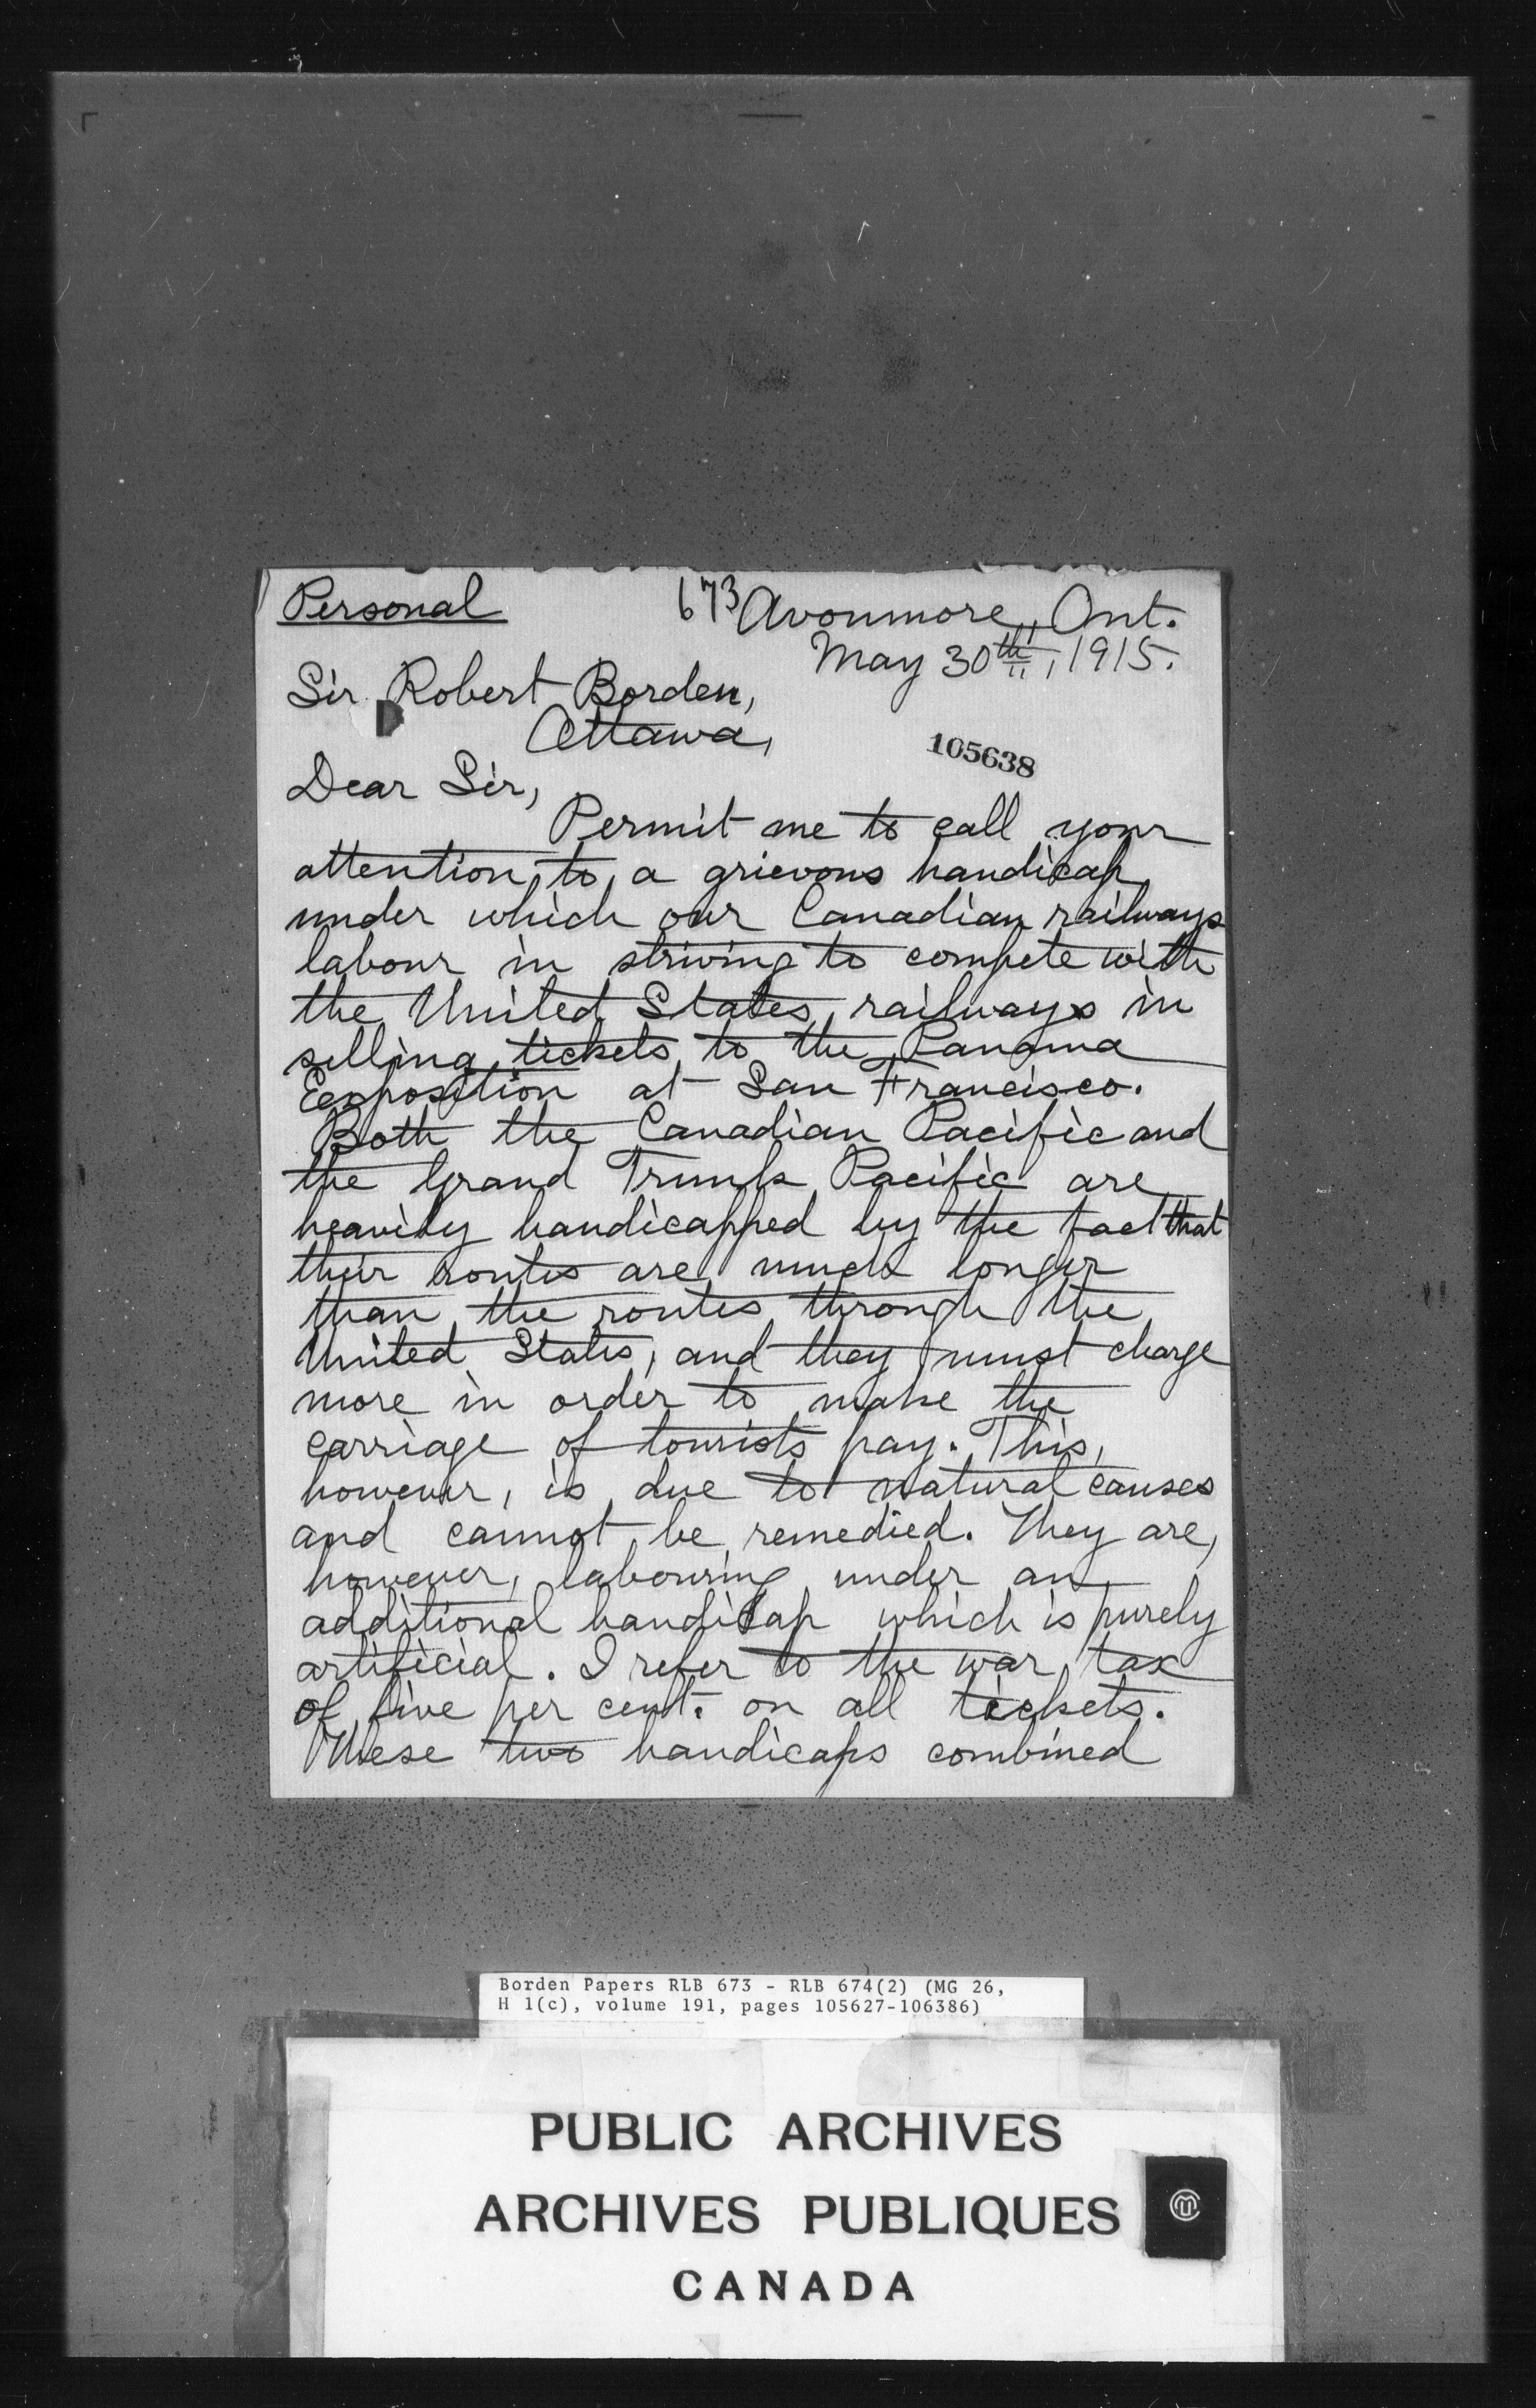 Personal
673 Avonmore, Ont.
May 30th, 1915.
Sir Robert Borden,
Ottawa,
105638
Dear Sir,
Permit me to call your
attention to a grievous handicap
under which our Canadian railways
labour in striving to compete with
the United States railways in
selling tickets to the Panama
Exposition at San Francisco.
Both the Canadian Pacific and
the Grand Trunk Pacific are
heavily handicapped by the fact that
their routes are much longer
than the routes through the
United States, and they must charge
more in order to make the
carriage of tourists pay. This,
however, is due to natural causes
and cannot be remedied. They are,
however, labouring under an
additional handicap which is purely
artificial. I refer to the war tax
of five per cent. on all tickets.
These two handicaps combined
Borden Papers RLB 673 - RLB 674(2) (MG 26,
H 1(c), volume 191, pages 105627-106386)
PUBLIC ARCHIVES
ARCHIVES PUBLIQUES
CANADA